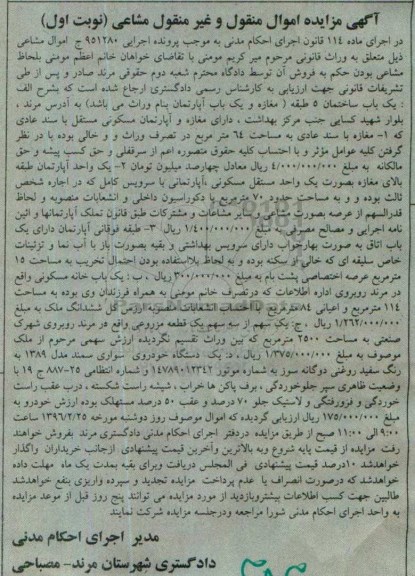 آگهی مزایده اموال منقول و غیر منقول مشاعی (نوبت اول)
در اجرای ماده ۱۱٤ قانون اجرای احکام مدنی به موجب پرونده اجرایی ۹۵۱۲۸۰ ج اموال مشاعی
ذیل متعلق به وراث قانونی مرحوم میر کریم مومنی با تقاضای خواهان خانم اعظم مومنی بلحاظ
مشاعی بودن حکم به فروش آن توسط دادگاه محترم شعبه دوم حقوقی مرند صادر و پس از طی
تشریفات قانونی جهت ارزیابی به کارشناس رسمی دادگستری ارجاع شده است که بشرح الف
: یک باب ساختمان ۵ طبقه ( مغازه و یک باب آپارتمان بنام وراث می باشد) به آدرس مرند ،
بلوار شهید کسایی جنب مرکز بهداشت ، دارای مغازه و آپارتمان مسکونی مستقل با سند عادی
که ۱- مغازه با سند عادی به مساحت ٦٤ متر مربع در تصرف وراث و و خالی بوده با در نظر
گرفتن کلیه عوامل مؤثر و با احتساب کلیه حقوق متصوره اعم از سرقفلی و حق کسب پیشه و حق
مالکانه به مبلغ ٤/۰۰۰/۰۰۰/۰۰۰ ریال معادل چهارصد میلیون تومان ۲- یک واحد آپارتمان طبقه
بالای مغازه بصورت یک واحد مستقل مسکونی ،آپارتمانی با سرویس کامل که در اجاره شخص
ثالث بوده و و به مساحت حدود ۷۰ مترمربع با دکوراسیون داخلی و انشعابات منصوبه و لحاظ
قدرالسهم از عرصه بصورت مشاعی و سایر مشاعات و مشترکات طبق قانون تملک آپارتمانها و آئین
نامه اجرایی و مصالح مصرفی به مبلغ ۱/٤۰۰/۰۰۰/۰۰۰ ریال ۳- طبقه فوقانی آپارتمان دارای یک
باب اتاق به صورت بهارخواب دارای سرویس بهداشتی و بقیه بصورت باز با آب نما و تزئینات
خاص سلیقه ای که خالی از سکنه بوده و به لحاظ بلااستفاده بودن احتمال تخریب به مساحت ۱۵
مترمربع عرصه اختصاصی پشت بام به مبلغ ۳۰۰/۰۰۰/۰۰۰ ریال ، ب : یک باب خانه مسکونی واقع
در مرند روبروی اداره اطلاعات که درتصرف خانم مومنی به همراه فرزندان وی بوده به مساحت
۱۱٤ مترمربع و اعیانی ۸٤ مترمربع با احتساب انشعابات منصوبه ارزش کل ششدانگ ملک به مبلغ
۱/۲٦۲/۰۰۰/۰۰۰ ریال . ج: یک سهم از سه سهم یک قطعه مزروعی واقع در مرند روبروی شهرک
صنعتی به مساحت ۲۵۰۰ مترمربع که بین وراث تقسیم نگردیده ارزش سهمی مرحوم از ملک
موصوف به مبلغ ۱/۳۷۵/۰۰۰/۰۰۰ ریال ، د: یک دستگاه خودروی سواری سمند مدل ۱۳۸۹ به
رنگ سفید روغنی دوگانه سوز به شماره موتور ۱٤۷۸۹۰۱۲۳٤۲ و شماره انتظامی ۲۵-۸۸۷ ج ۱۹ با
وضعیت ظاهری سپر جلوخوردگی ، برف پاکن ها خراب ، شیشه راست شکسته ، درب عقب راست
خوردگی و فرورفتگی و لاستیک جلو ۷۰ درصد و عقب ۵۰ درصد مستهلک بوده ارزش خودرو به
مبلغ ۱۷۵/۰۰۰/۰۰۰ ریال ارزیابی گردیده که اموال موصوف روز دوشنبه مورخه ۱۳۹٦/۲/۲۵ ساعت
۹:۰۰ الی ۱۱:۰۰ صبح از طریق مزایده دردفتر اجرای احکام مدنی دادگستری مرند بفروش خواهند
رفت مزایده از قیمت پایه شروع وبه بالاترین وآخرین قیمت پیشنهادی ازجانب خریداران واگذار
خواهدشد ۱۰درصد قیمت پیشنهادی فی المجلس دریافت وبرای بقیه بمدت یک ماه مهلت داده
خواهدشد که درصورت انصراف یا عدم پرداخت مزایده تجدید و سپرده واریزی بنفع خواهدشد
طالبین جهت کسب اطلاعات بیشتروبازدید از مورد مزایده می توانند پنج روز قبل از موعد مزایده
به واحد اجرای احکام مدنی شورا مراجعه ودرجلسه مزایده شرکت نمایند
مدیر اجرای احکام مدنی
دادگستری شهرستان مرند- مصباحی